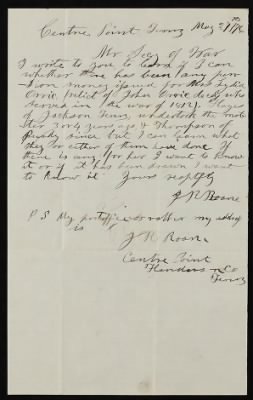 Centre Point Tenn May 27th /76
Mr Sec of War
I write to you to learn if I can
whether there has been any pen-
sion money ishued for Mrs Lydia
Orrie, Relict of John Orrie decd who
served in the war of 1812.
of Jackson Tenn, undertook the mat
ter 3 or 4 years ago & Thompson of
since but I can learn what
they or either of them have done If
there is any for her I want to know
it or if it has been drawn I want
to know it Yours respctfy
J R Roane
P S My postoffice or rather my address
is J R Roane
Centre Point
Henderson Co
Tenn